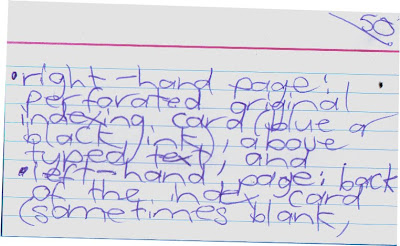 50
• right-hand page:
perforated original
indexing card (blue or
black ink), above
typed text, and
• left-hand page: back
of the index card
(sometimes blank,